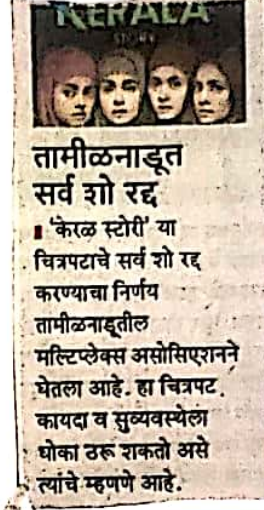 KERALA
STORY
तामीळनाडूत
सर्व शो रद्द
'केरळ स्टोरी' या
चित्रपटाचे सर्व शो रद्द
करण्याचा निर्णय
तामीळनाडूतील
मल्टिप्लेक्स असोसिएशनने
घेतला आहे. हा चित्रपट
कायदा व सुव्यवस्थेला
धोका ठरू शकतो असे
त्यांचे म्हणणे आहे.